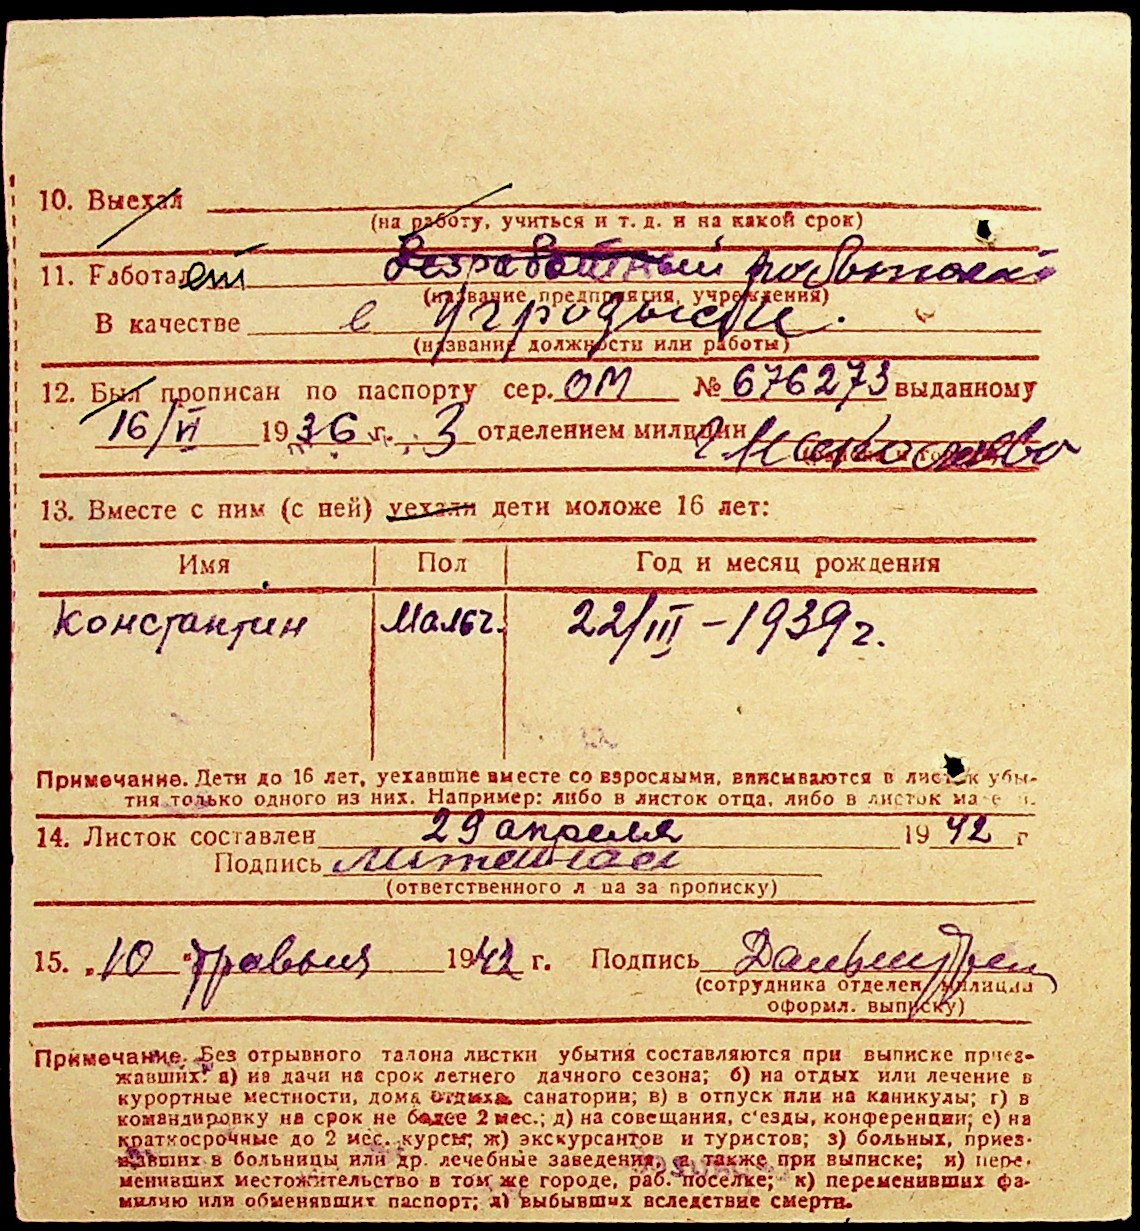 10. Выехал
(на работу, учиться и т. д. и на какой срок)
11. Работает безработный
(название предприятия, учреждения)
В качестве в
(название должности или работы)
12. Был прописан по паспорту сер. ОМ № 676273 выданному
16/VI 1936 г. 3 отделением милиции
13. Вместе с ним (с ней) уехали дети моложе 16 лет:
Имя Пол Год и месяц рождения
Константин Мальч. 22/III – 1939 г.
Примечание. Дети до 16 лет, уехавшие вместе со взрослыми, вписываются в листок убы-
тия только одного из них. Например: либо в листок отца, либо в листок ма е и.
14. Листок составлен 29 апреля 1942 г
Подпись
(ответственного л ца за прописку)
15. „10" травня 1942 г. Подпись
(сотрудника отделен. милиции
оформл. выписку)
Примечание. Без отрывного талона листки убытия составляются при выписке приез-
жавших: а) на дачи на срок летнего дачного сезона; б) на отдых или лечение в
курортные местности, дома отдыха, санатории; в) в отпуск или на каникулы; г) в
командировку на срок не более 2 мес.; д) на совещания, с'езды, конференции; е) на
краткосрочные до 2 мес. курсы; ж) экскурсантов и туристов; з) больных, приез-
жавших в больницы или др. лечебные заведения, а также при выписке; и) пере-
менивших местожительство в том же городе, раб. поселке; к) переменивших фа-
милию или обменявших паспорт; л) выбывших вследствие смерти.